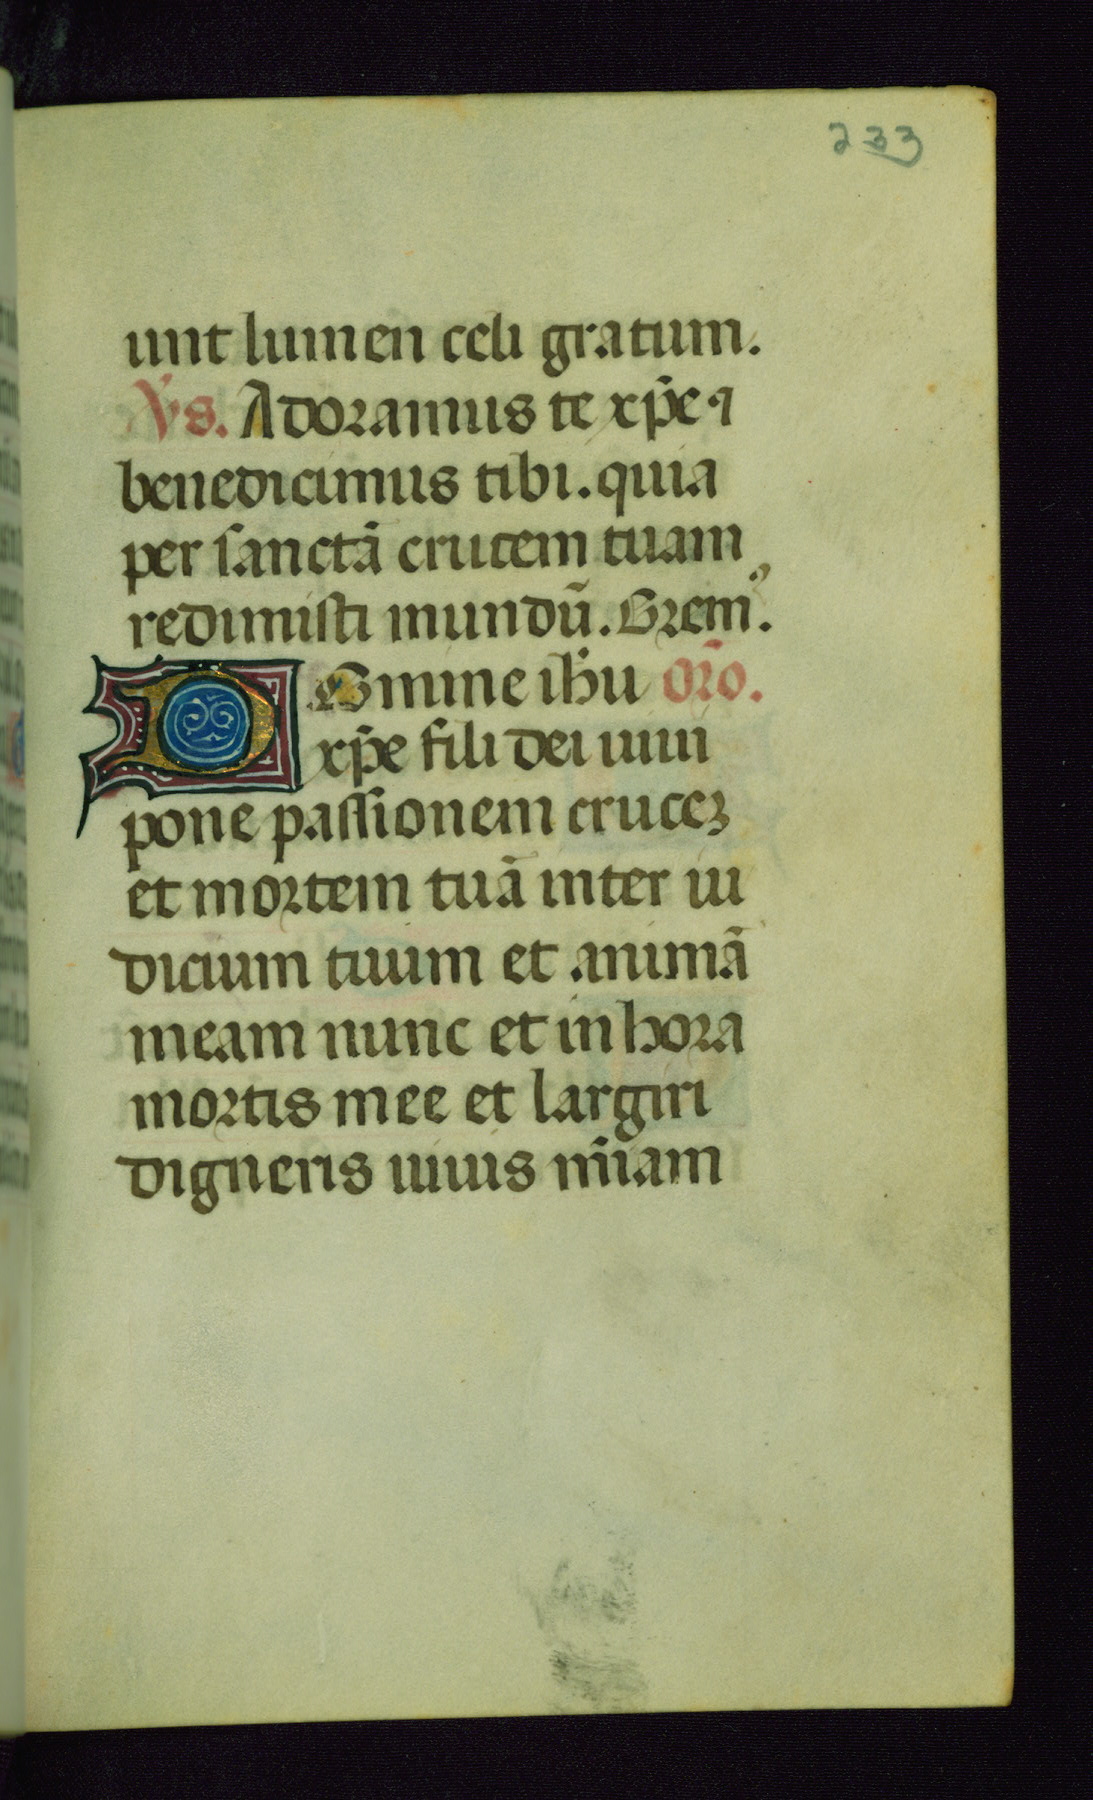 233
unt lumen celi gratum.
V̄s. Adoramus te xp̄e ⁊
benedicimus tibi. quia
per sanctā crucem tuam
redimisti mundū. Orem⁹.
DOmine ih̄u Or̄o.
xp̄e fili dei uiui
pone passionem crucez
et mortem tuā inter iu
dicium tuum et animā
meam nunc et in hora
mortis mee et largiri
digneris uiuis m̄iam